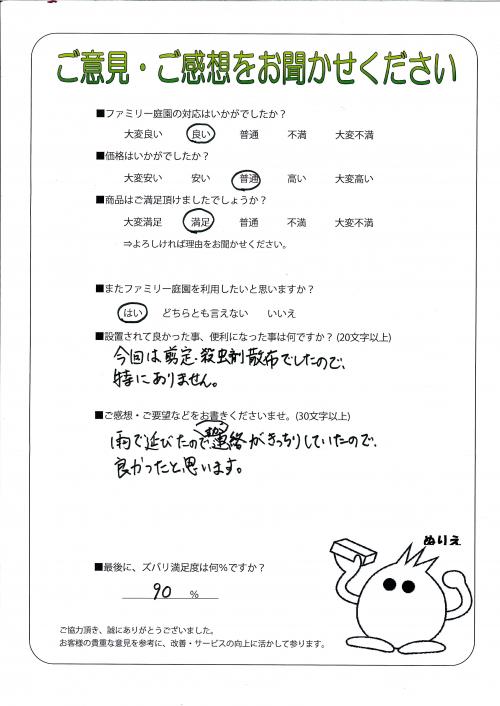 ご意見・ご感想をお聞かせください
■ファミリー庭園の対応はいかがでしたか？
大変良い 良い 普通 不満 大変不満
■価格はいかがでしたか？
大変安い 安い 普通 高い 大変高い
■商品はご満足頂けましたでしょうか？
大変満足 満足 普通 不満 大変不満
⇒よろしければ理由をお聞かせください。
■またファミリー庭園を利用したいと思いますか？
はい どちらとも言えない いいえ
■設置されて良かった事、便利になった事は何ですか？(20文字以上)
今回は剪定・殺虫剤散布でしたので、
特にありません。
■ご感想・ご要望などをお書きくださいませ。(30文字以上)
雨で延びたので、連絡がきっちりしていたので、
良かったと思います。
ぬりえ
■最後に、ズバリ満足度は何％ですか？
90 ％
ご協力頂き、誠にありがとうございました。
お客様の貴重な意見を参考に、改善・サービスの向上に活かして参ります。